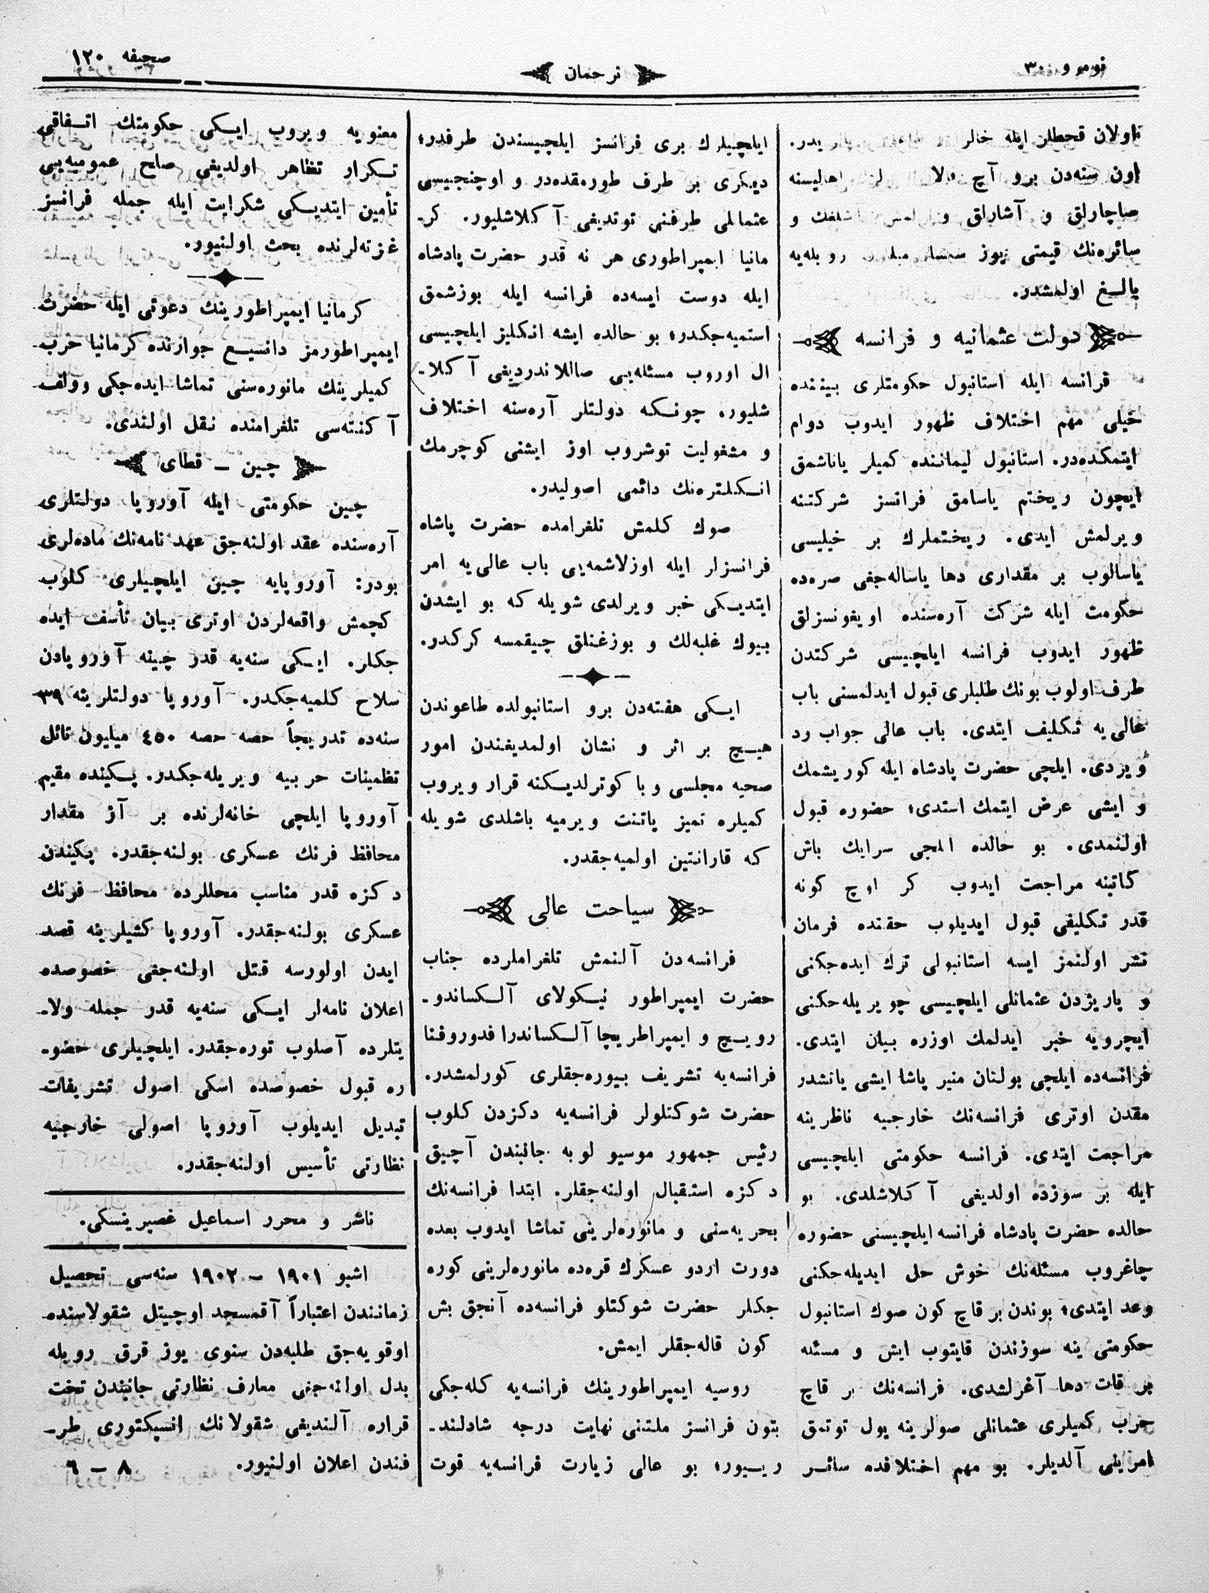 نومرو ٣٠
ترجمان
صحیفه ١٢٠
اولان قحطلر ایله خالر
اون سنه‌دن برو آچ اهلیسنه
صاچارلق و آشارلق و و
سائره‌نك قیمتی یوز روبله‌یه
بالغ اولمشدر.
دولت عثمانیه و فرانسه
فرانسه ایله استانبول حکومتلری بیننده
خیلی مهم اختلاف ظهور ایدوب دوام
ایتمکده‌در. استانبول لیماننده کمیلر یاناشمق
ایچون ریختم یاسامق فرانسز شرکتنه
ویرلمش ایدی. ریختملرك بر خیلیسی
یاسالوب بر مقداری دها یاساله‌جغی صره‌ده
حکومت ایله شرکت آره‌سنده اویغونسزلق
ظهور ایدوب فرانسه ایلچیسی شرکتدن
طرف اولوب بونك طلبلری قبول ایدلمسنی باب
عالی‌یه تکلیف ایتدی. باب عالی جواب رد
ویردی. ایلچی حضرت پادشاه ایله کوریشمك
و ایشی عرض ایتمك استدی؛ حضوره قبول
اولنمدی. بو حالده ایلچی سرایك باش
کاتبنه مراجعت ایدوب کر اوچ کونه
قدر تکلیفی قبول ایدیلوب حقنده فرمان
نشر اولنمز ایسه استانبولی ترك ایده‌جکنی
و پاریژدن عثمانلی ایلچیسی چویریله‌جکنی
ایچرویه خبر ایدلمك اوزره بیان ایتدی.
فرانسه‌ده ایلچی بولنان منیر پاشا ایشی یانشدر
مقدن اوتری فرانسه‌نك خارجیه ناظرینه
مراجعت ایتدی. فرانسه حکومتی ایلچیسی
ایله بر سوزده اولدیغی آکلاشلدی. بو
حالده حضرت پادشاه فرانسه ایلچیسنی حضوره
چاغروب مسئله‌نك خوش حل ایدیله‌جکنی
وعد ایتدی؛ بوندن بر قاچ کون صوك استانبول
حکومتی ینه سوزندن قایتوب ایش و مسئله
بر قات دها آغرلشدی. فرانسه‌نك بر قاچ
حرب کمیلری عثمانلی صولرینه یول توتمق
امرینی آلدیلر. بو مهم اختلافده سائر
ایلچیلرك بری فرانسز ایلچیسندن طرفدر؛
دیکری بر طرف طورمقده‌در و اوچنجیسی
عثمانلی طرفنی توتدیغی آکلاشلیور. کر-
مانیا ایمپراطوری هر نه قدر حضرت پادشاه
ایله دوست ایسه‌ده فرانسه ایله بوزشمق
استمیه‌جکدر؛ بو حالده ایشه انکلیز ایلچیسی
ال اوروب مسئله‌یی صاللاندردیغی آکلا-
شلیور. چونکه دولتلر آره‌سنه اختلاف
و مشغولیت توشروب اوز ایشنی کوچرمك
انکلتره‌نك دائمی اصولیدر.
صوك کلمش تلغرامده حضرت پاشاه
فرانسزلر ایله اوزلاشمه‌یی باب عالی‌یه امر
ایتدیکی خبر ویرلدی شویله که بو ایشدن
بیوك غلبه‌لك و بوزغنلق چیقمسه کرکدر.
ایکی هفته‌دن برو استانبولده طاعوندن
هیچ بر اثر و نشان اولمدیغندن امور
صحیه مجلسی وبا کوترلدیکنه قرار ویروب
کمیلره تمیز پاتنت ویرمیه باشلدی شویله
که قارانتین اولمیه‌جقدر.
سیاحت عالی
فرانسه‌دن آلنمش تلغراملرده جناب
حضرت ایمپراطور نیکولای آلکساندو-
رویچ و ایمپراطریچا آلکساندرا فدوروفنا
فرانسه‌یه تشریف بیوره‌جقلری کورلمشدر.
حضرت شوکتلولر فرانسه‌یه دکزدن کلوب
رئیس جمهور موسیو لوبه جانبندن آچیق
دکزه استقبال اولنه‌جقلر. ابتدا فرانسه‌نك
بحریه‌سنی و مانوره‌لرینی تماشا ایدوب بعده
دورت اردو عسکرك قره‌ده مانوره‌لرینی کوره
جکلر حضرت شوکتلو فرانسه‌ده آنجق بش
کون قاله‌جقلر ایمش.
روسیه ایمپراطورینك فرانسه‌یه کله‌جکی
بتون فرانسز ملتنی نهایت درجه شادلند-
ریپور؛ بو عالی زیارت فرانسه‌یه قوت
معنویه ویروب ایکی حکومتك اتفاقی
تکرار تظاهر اولدیغی صلح عمومیه‌یی
تأمین ایتدیکی شکرایت ایله جمله فرانسز
غزته‌لرنده بحث اولنیور.
کرمانیا ایمپراطورینك دعوتی ایله حضرت
ایمپراطورمز دانسیغ جوازنده کرمانیا حرب
کمیلرینك مانوره‌سنی تماشا ایده‌جکی وولف
آکنته‌سی تلغرامنده نقل اولندی.
چین – قطای
چین حکومتی ایله آوروپا دولتلری
آره‌سنده عقد اولنه‌جق عهد نامه‌نك ماده‌لری
بودر: آوروپایه چین ایلچیلری کلوب
کچمش واقعه‌لردن اوتری بیان تأسف ایده
جکلر. ایکی سنه‌یه قدر چینه آوروپادن
سلاح کلمیه‌جکدر. آوروپا دولتلرینه ٣٩
سنه‌ده تدریجاً حصه حصه ٤٥٠ میلیون تائل
تظمینات حربیه ویریله‌جکدر. پکینده مقیم
آوروپا ایلچی خانه‌لرنده بر آز مقدار
محافظ فرنك عسکری بولنه‌جقدر. پکیندن
دکزه قدر مناسب محللرده محافظ فرنك
عسکری بولنه‌جقدر. آوروپا کشیلرینه قصد
ایدن اولورسه قتل اولنه‌جغی خصوصده
اعلان نامه‌لر ایکی سنه‌یه قدر جمله ولا-
یتلرده آصلوب توره‌جقدر. ایلچیلری حضو-
ره قبول خصوصده اسکی اصول تشریفات
تبدیل ایدیلوب آوروپا اصولی خارجیه
نظارتی تأسیس اولنه‌جقدر.
ناشر و محرر اسماعیل غصپرینسکی.
اشبو ١٩٠١ – ١٩٠٢ سنه‌سی تحصیل
زمانندن اعتباراً آقمسجد اوچیتل شقولاسنده
اوقویه‌جق طلبه‌دن سنوی یوز قرق روبله
بدل اولنه‌جغی معارف نظارتی جانبندن تحت
قراره آلندیغی شقولانك انسپکتوری طر-
فندن اعلان اولنیور. ٨ – ٦